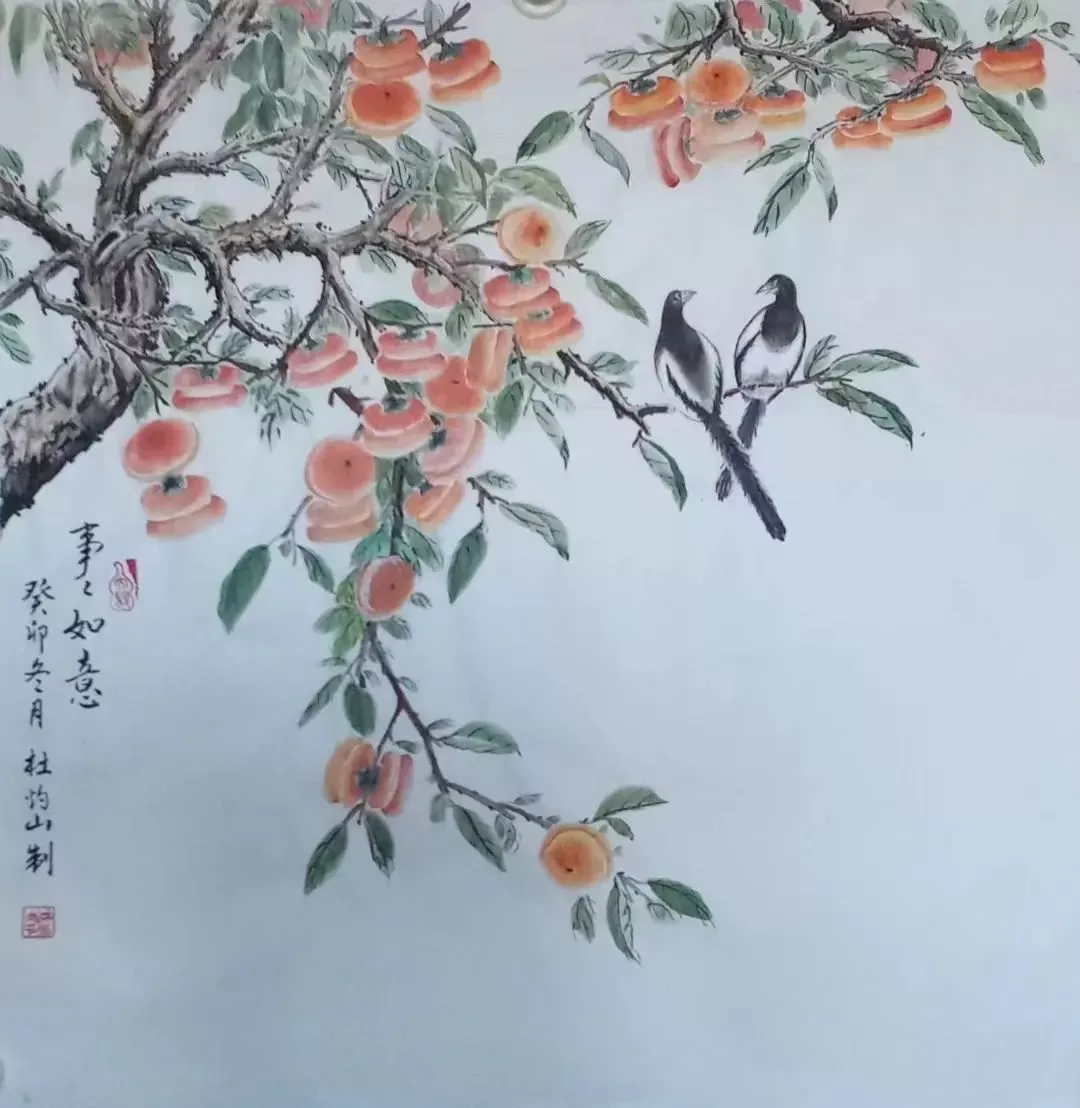 事〻如意
癸卯冬月 杜灼山制